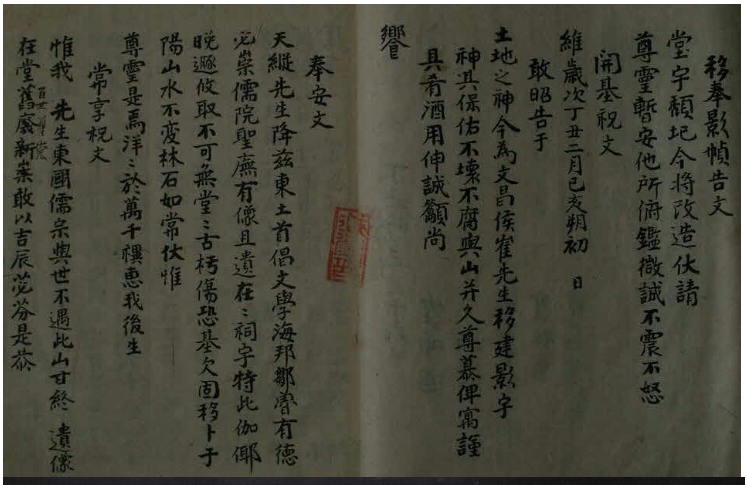 移奉影幀告文
堂宇頹圮今將改造伏請
尊靈暫安他所俯鑑微誠不震不怒
開基祝文
維歲次丁丑二月己亥朔初 日
敢昭告于
土地之神今為文昌侯崔先生移建影宇
神其保佑不壞不腐與山并久尊慕俾寓謹
具肴酒用伸誠籲尚
饗
奉安文
天縱先生降茲東土首倡文學海邦鄒魯有德
必崇儒院聖廡有像且遺在〻祠宇特此伽倻
晚遯攸取不可無堂〻古朽傷恐基欠固移卜于
陽山水不变林石如常伏惟
尊靈是焉洋〻於萬千禩惠我後生
常享祝文
惟我 先生東國儒宗與世不遇此山甘終 遺像
在堂舊廢新葺敢以吉辰苾芬是恭